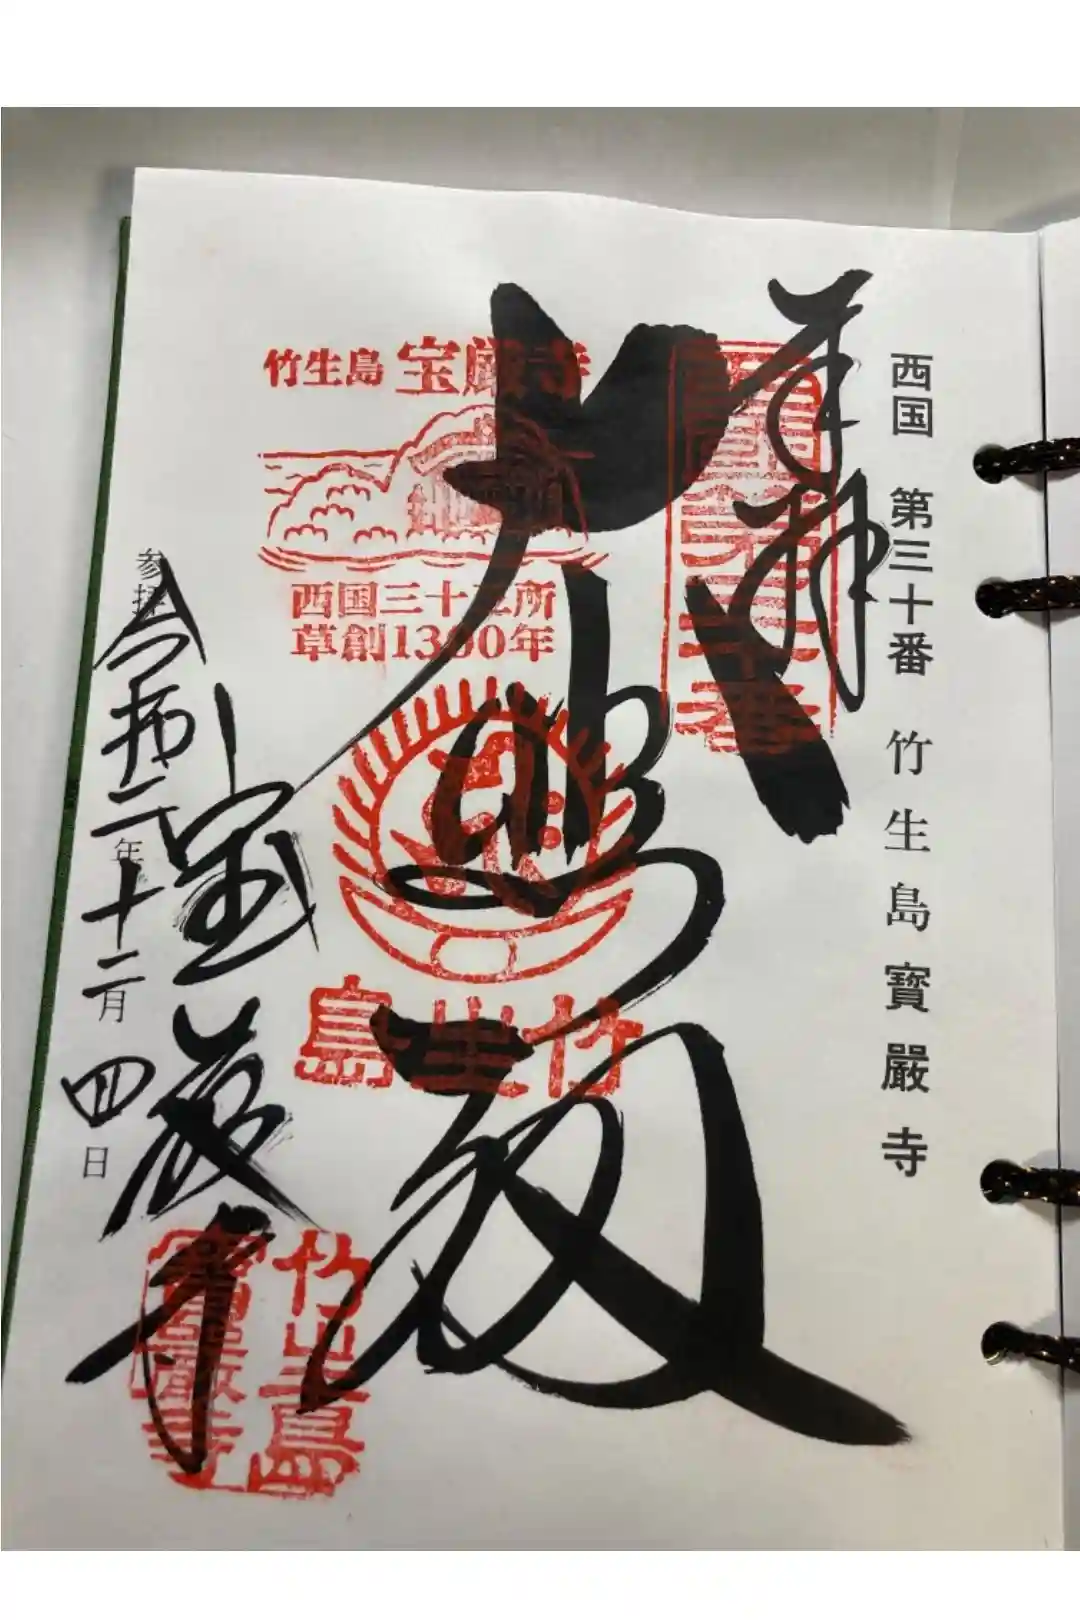 西国 第三十番 竹生島寶厳寺
奉拝
西國第三十番
大悲殿
竹生島 宝厳寺
西国三十三所
草創1300年
竹生島
宝厳寺
竹生島
寶嚴寺
参拝
令和二年十二月四日